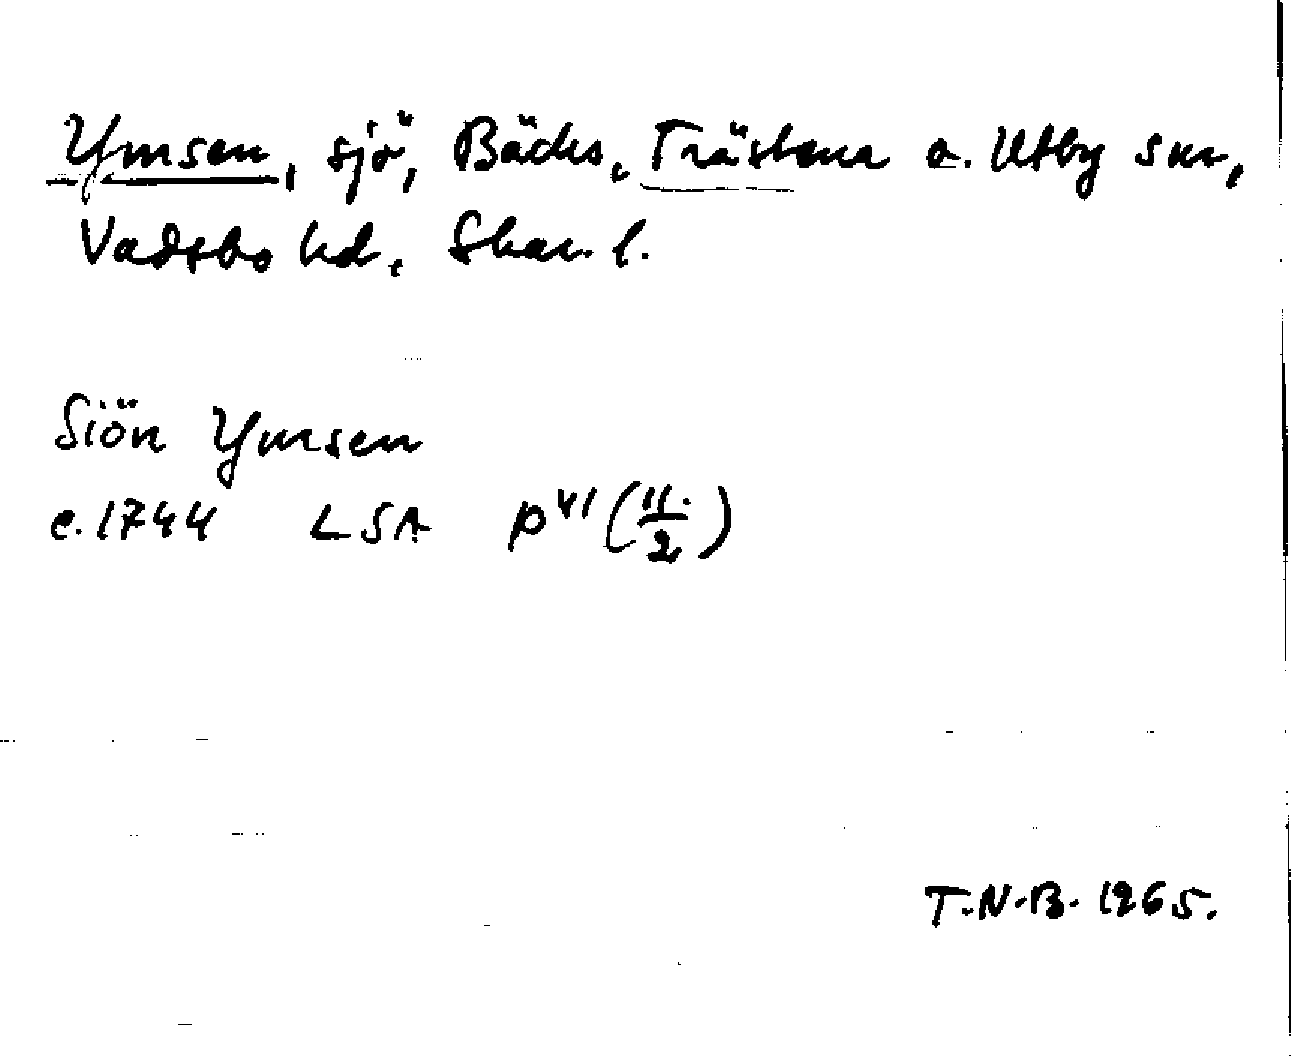 Ymsen, sjö, Bäcks, Trästena o. Utby snr,
Vadsbo hd, Skar. l.
Siön Ymsen
c. 1744 LSA P 41 (11:/2)
T.N.B. 1965.